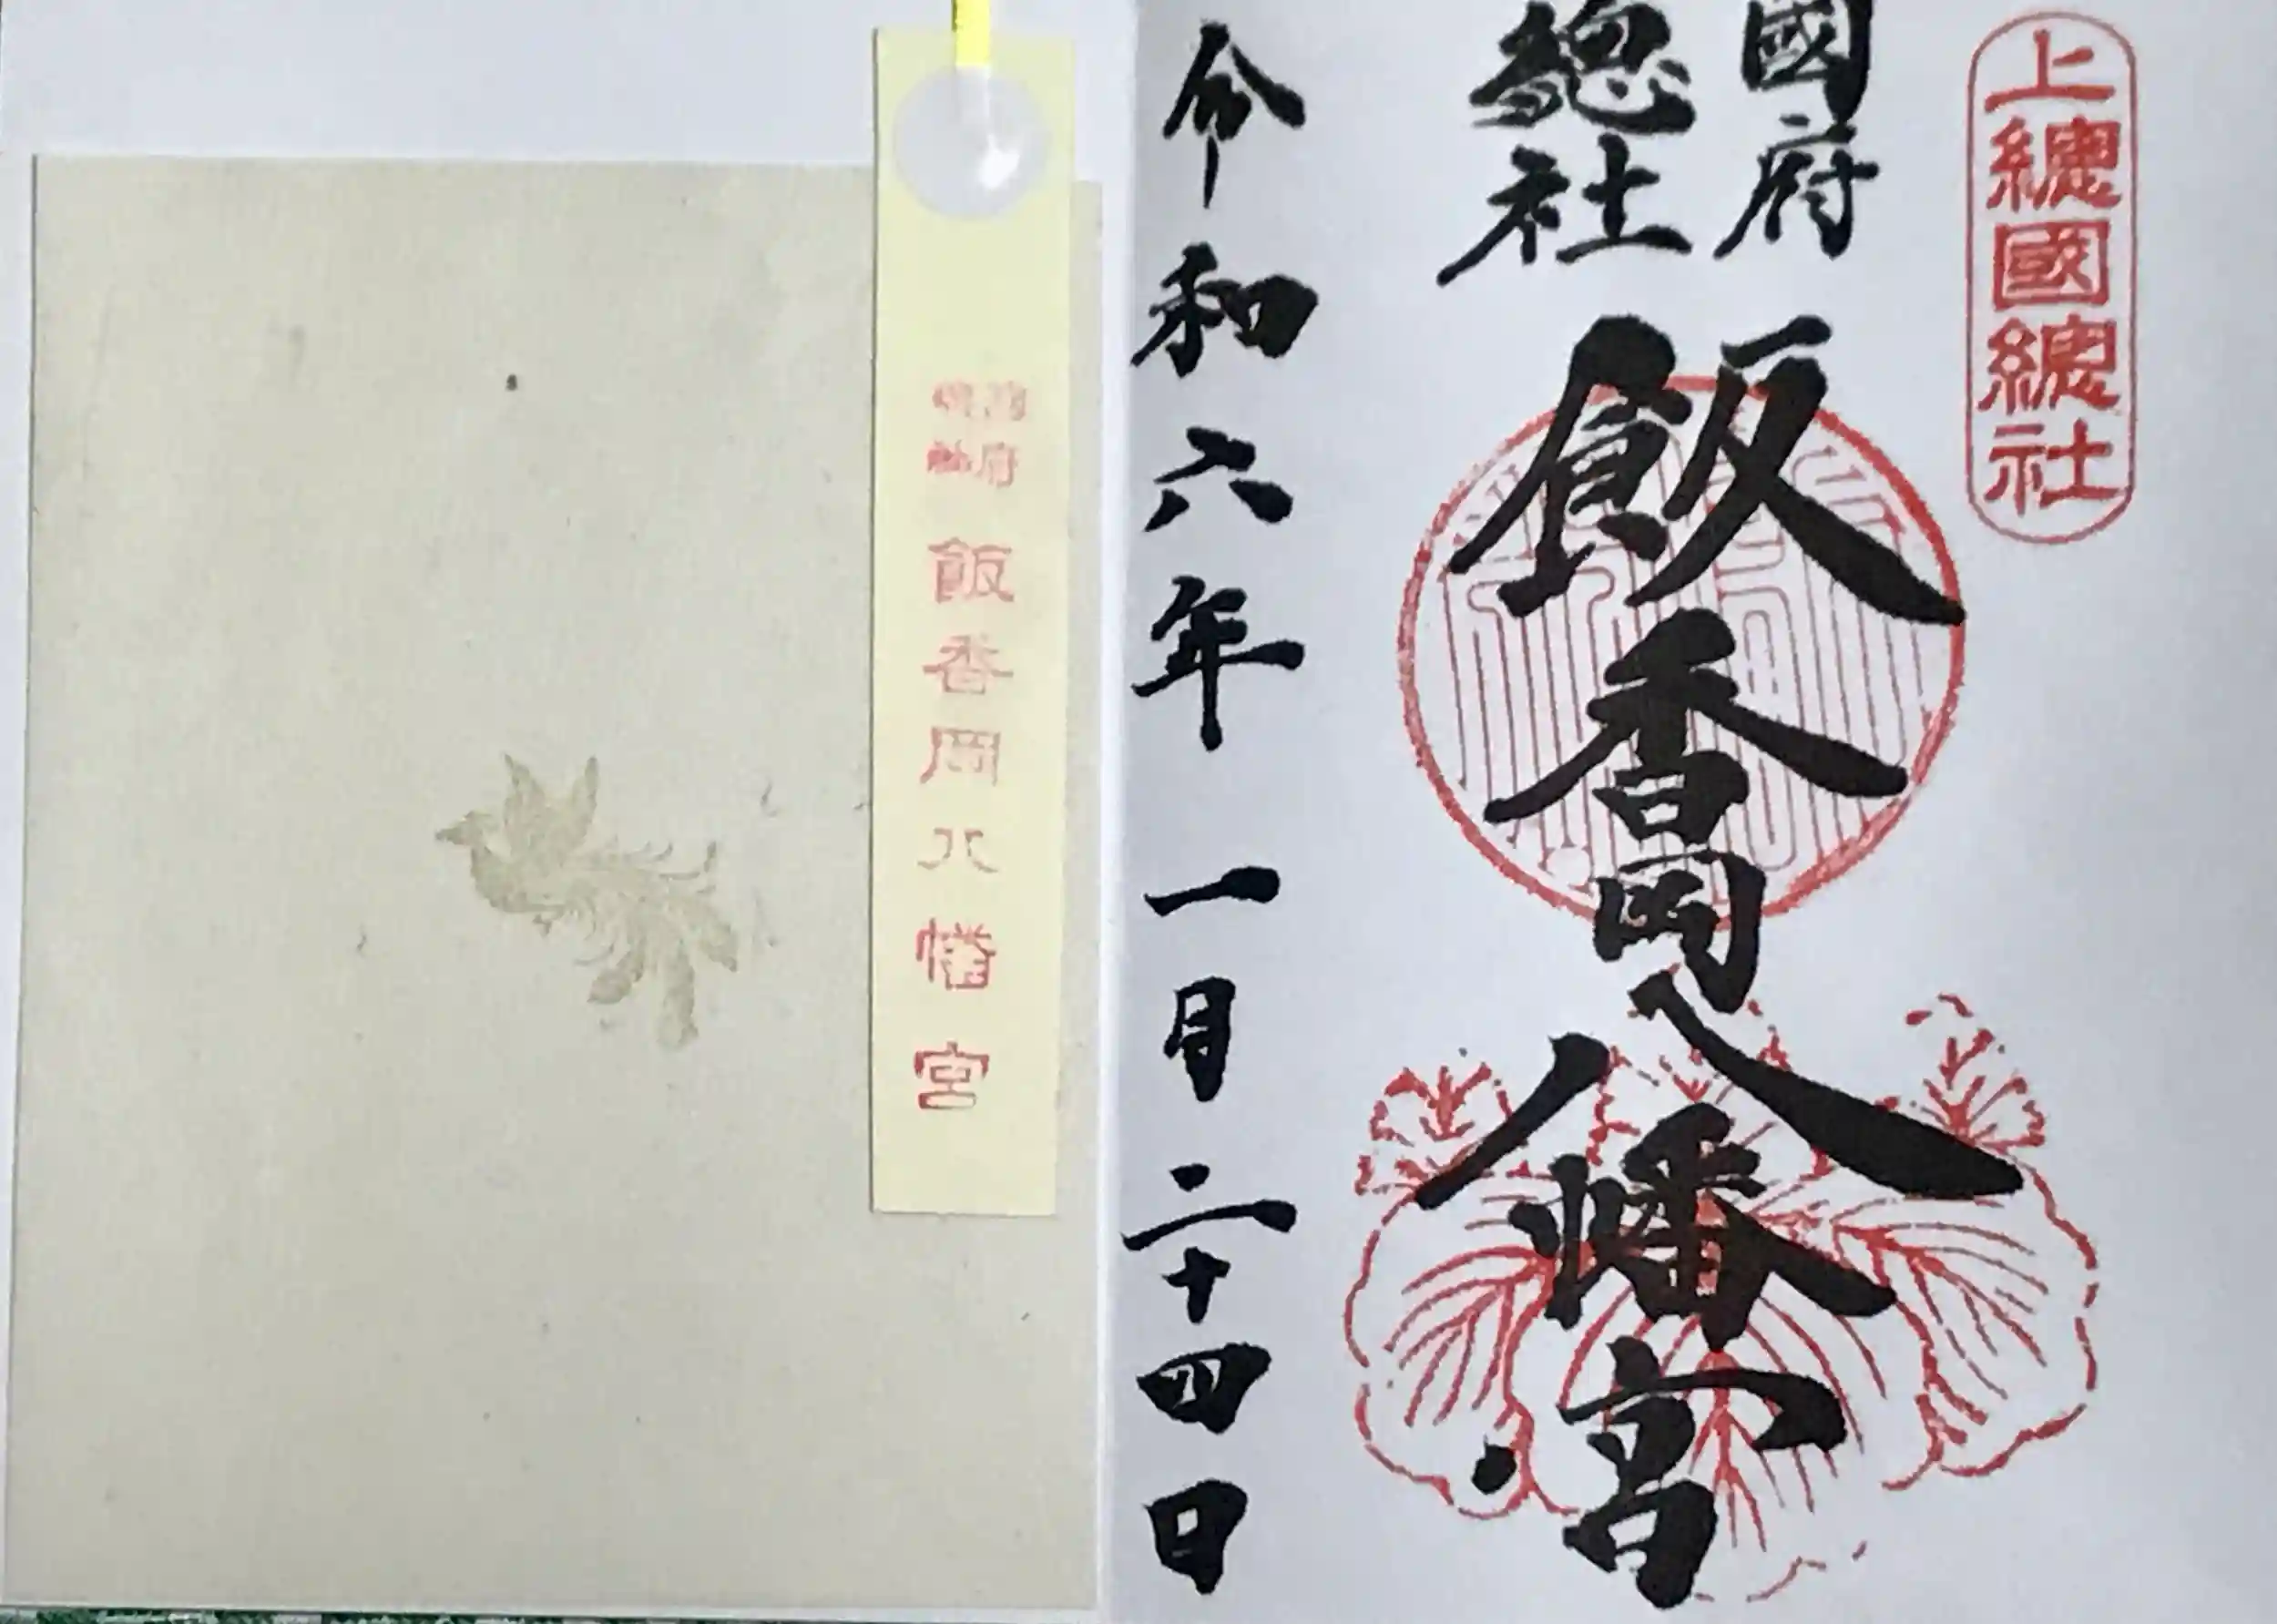 上總國總社
國府
總社
飯香岡八幡宮
令和六年一月二十四日
國府
總社
飯香岡八幡宮